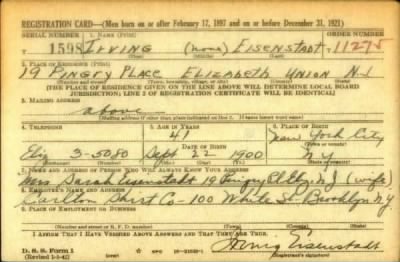 REGISTRATION CARD—(Men born on or after February 17, 1897 and on or before December 31, 1921)
SERIAL NUMBER 1. NAME (Print) ORDER NUMBER
1598 Irving (none) Eisenstadt 11295
(First) (Middle) (Last)
2. PLACE OF RESIDENCE (Print)
19 Pingry Place Elizabeth Union N.J.
(Number and street) (Town, township, village, or city) (County) (State)
[THE PLACE OF RESIDENCE GIVEN ON THE LINE ABOVE WILL DETERMINE LOCAL BOARD
JURISDICTION; LINE 2 OF REGISTRATION CERTIFICATE WILL BE IDENTICAL]
3. MAILING ADDRESS
above
[Mailing address if other than place indicated on line 2. If same insert word same]
4. TELEPHONE 5. AGE IN YEARS 6. PLACE OF BIRTH
41 New York City
DATE OF BIRTH
Eliz 3-5080 Sept 22 1900 N.Y.
7. NAME AND ADDRESS OF PERSON WHO WILL ALWAYS KNOW YOUR ADDRESS
Mrs Sarah Eisenstadt 19 Pingry Pl Eliz NJ (wife)
8. EMPLOYER'S NAME AND ADDRESS
Carlton Shirt Co - 100 White St Brooklyn NY
9. PLACE OF EMPLOYMENT OR BUSINESS
(Number and street or R. F. D. number) (Town) (County) (State)
I AFFIRM THAT I HAVE VERIFIED ABOVE ANSWERS AND THAT THEY ARE TRUE.
D. S. S. Form 1
(Revised 1-1-42) Irving Eisenstadt